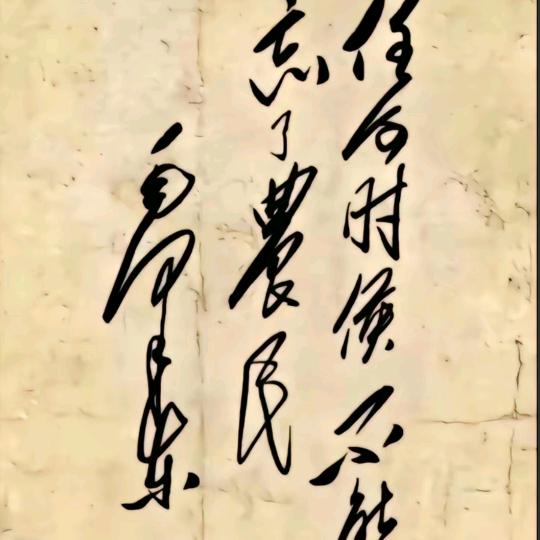 任何时候不能
忘了農民
毛泽东